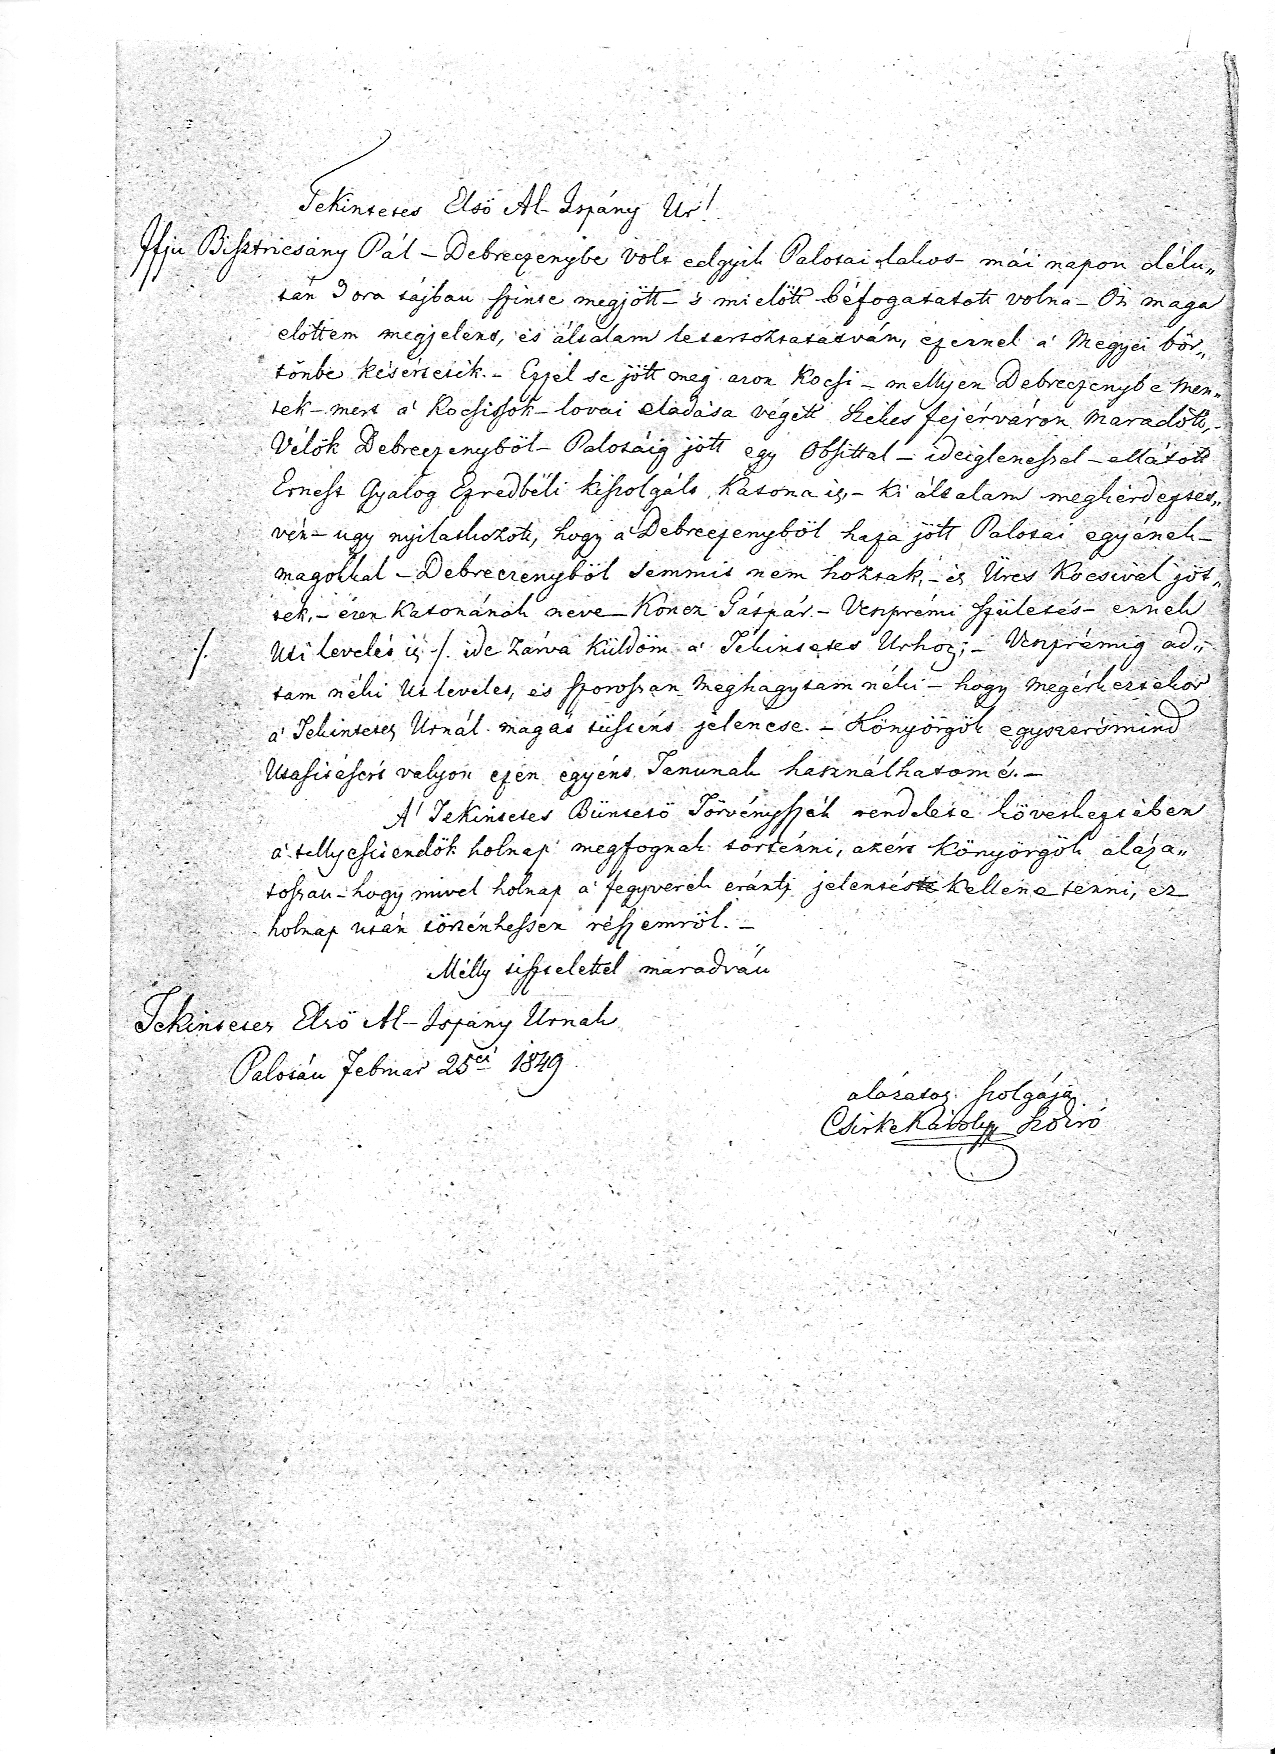 Tekintetes Első Al-Ispány Ur!
Ifju Bisztricsány Pál – Debreczenybe volt edgyik Palotai lakos – mái napon délu„
tán 3 ora tájban szinte megjött – 's mielőtt béfogatatott volna – Ön maga
előttem megjelent, és általam letartoztatatván, ezennel a' Megyei bör„
tönbe késértetik. – Ezzel se jött meg azon Kocsi – mellyen Debreczenybe men„
tek – mert a' Kocsissok – lovai eladása végett Székes fejérváron maradott, –
Vélök Debreczenyböl – Palotáig jött egy Obsittal – ideiglenessel – ellátott
Ernest Gyalog Ezredbéli kiszolgált Katona is, – ki általam megkérdeztet„
vén – ugy nyilatkozott, hogy a' Debreczenyböl haza jött Palotai egyének –
magokkal – Debreczenyböl semmit nem hoztak, – és Üres Kocsival jöt„
tek, – ezen Katonának neve – Koncz Gáspár. – Veszprémi születés – ennek
./. Uti levelét is ./. ide zárva küldöm a' Tekintetes Urhoz; – Veszprémig ad„
tam néki Utlevelet, és szorossan meghagytam néki – hogy megérkeztekor
a' Tekintetes Urnál magát tüstént jelentse. – Könyörgök egyszersmind
Utasitásért valyon ezen egyént Tanunak használhatom é. –
A' Tekintetes Büntető Törvényszék rendelete következtében
a' tellyesitendők holnap megfognak történni, azért könyörgök aláza„
tossan – hogy mivel holnap a' fegyverek eránti jelentést kellene tenni, ez
holnap után történhessen részemröl. –
Mélly tisztelettel maradván
Tekintetes Első Al-Ispány Urnak
Palotán Februar 25én 1849
alázatos szolgája
Csirke Károly szbiró